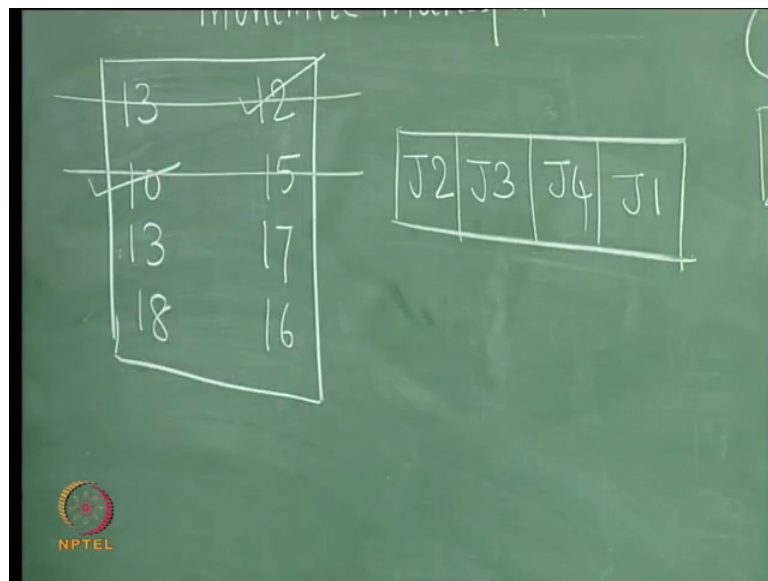 13 12
10 15
13 17
18 16
J2 J3 J4 J1
NPTEL